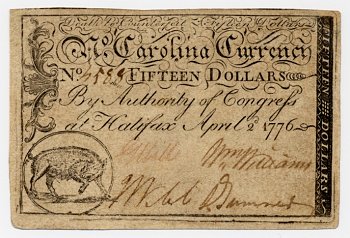 Death to Counterfeit Fifteen Dollars
No. Carolina Currency
No. FIFTEEN DOLLARS
By Authority of Congress
at Halifax April 2 1776
Wm Williams
J Webb
FIFTEEN DOLLARS